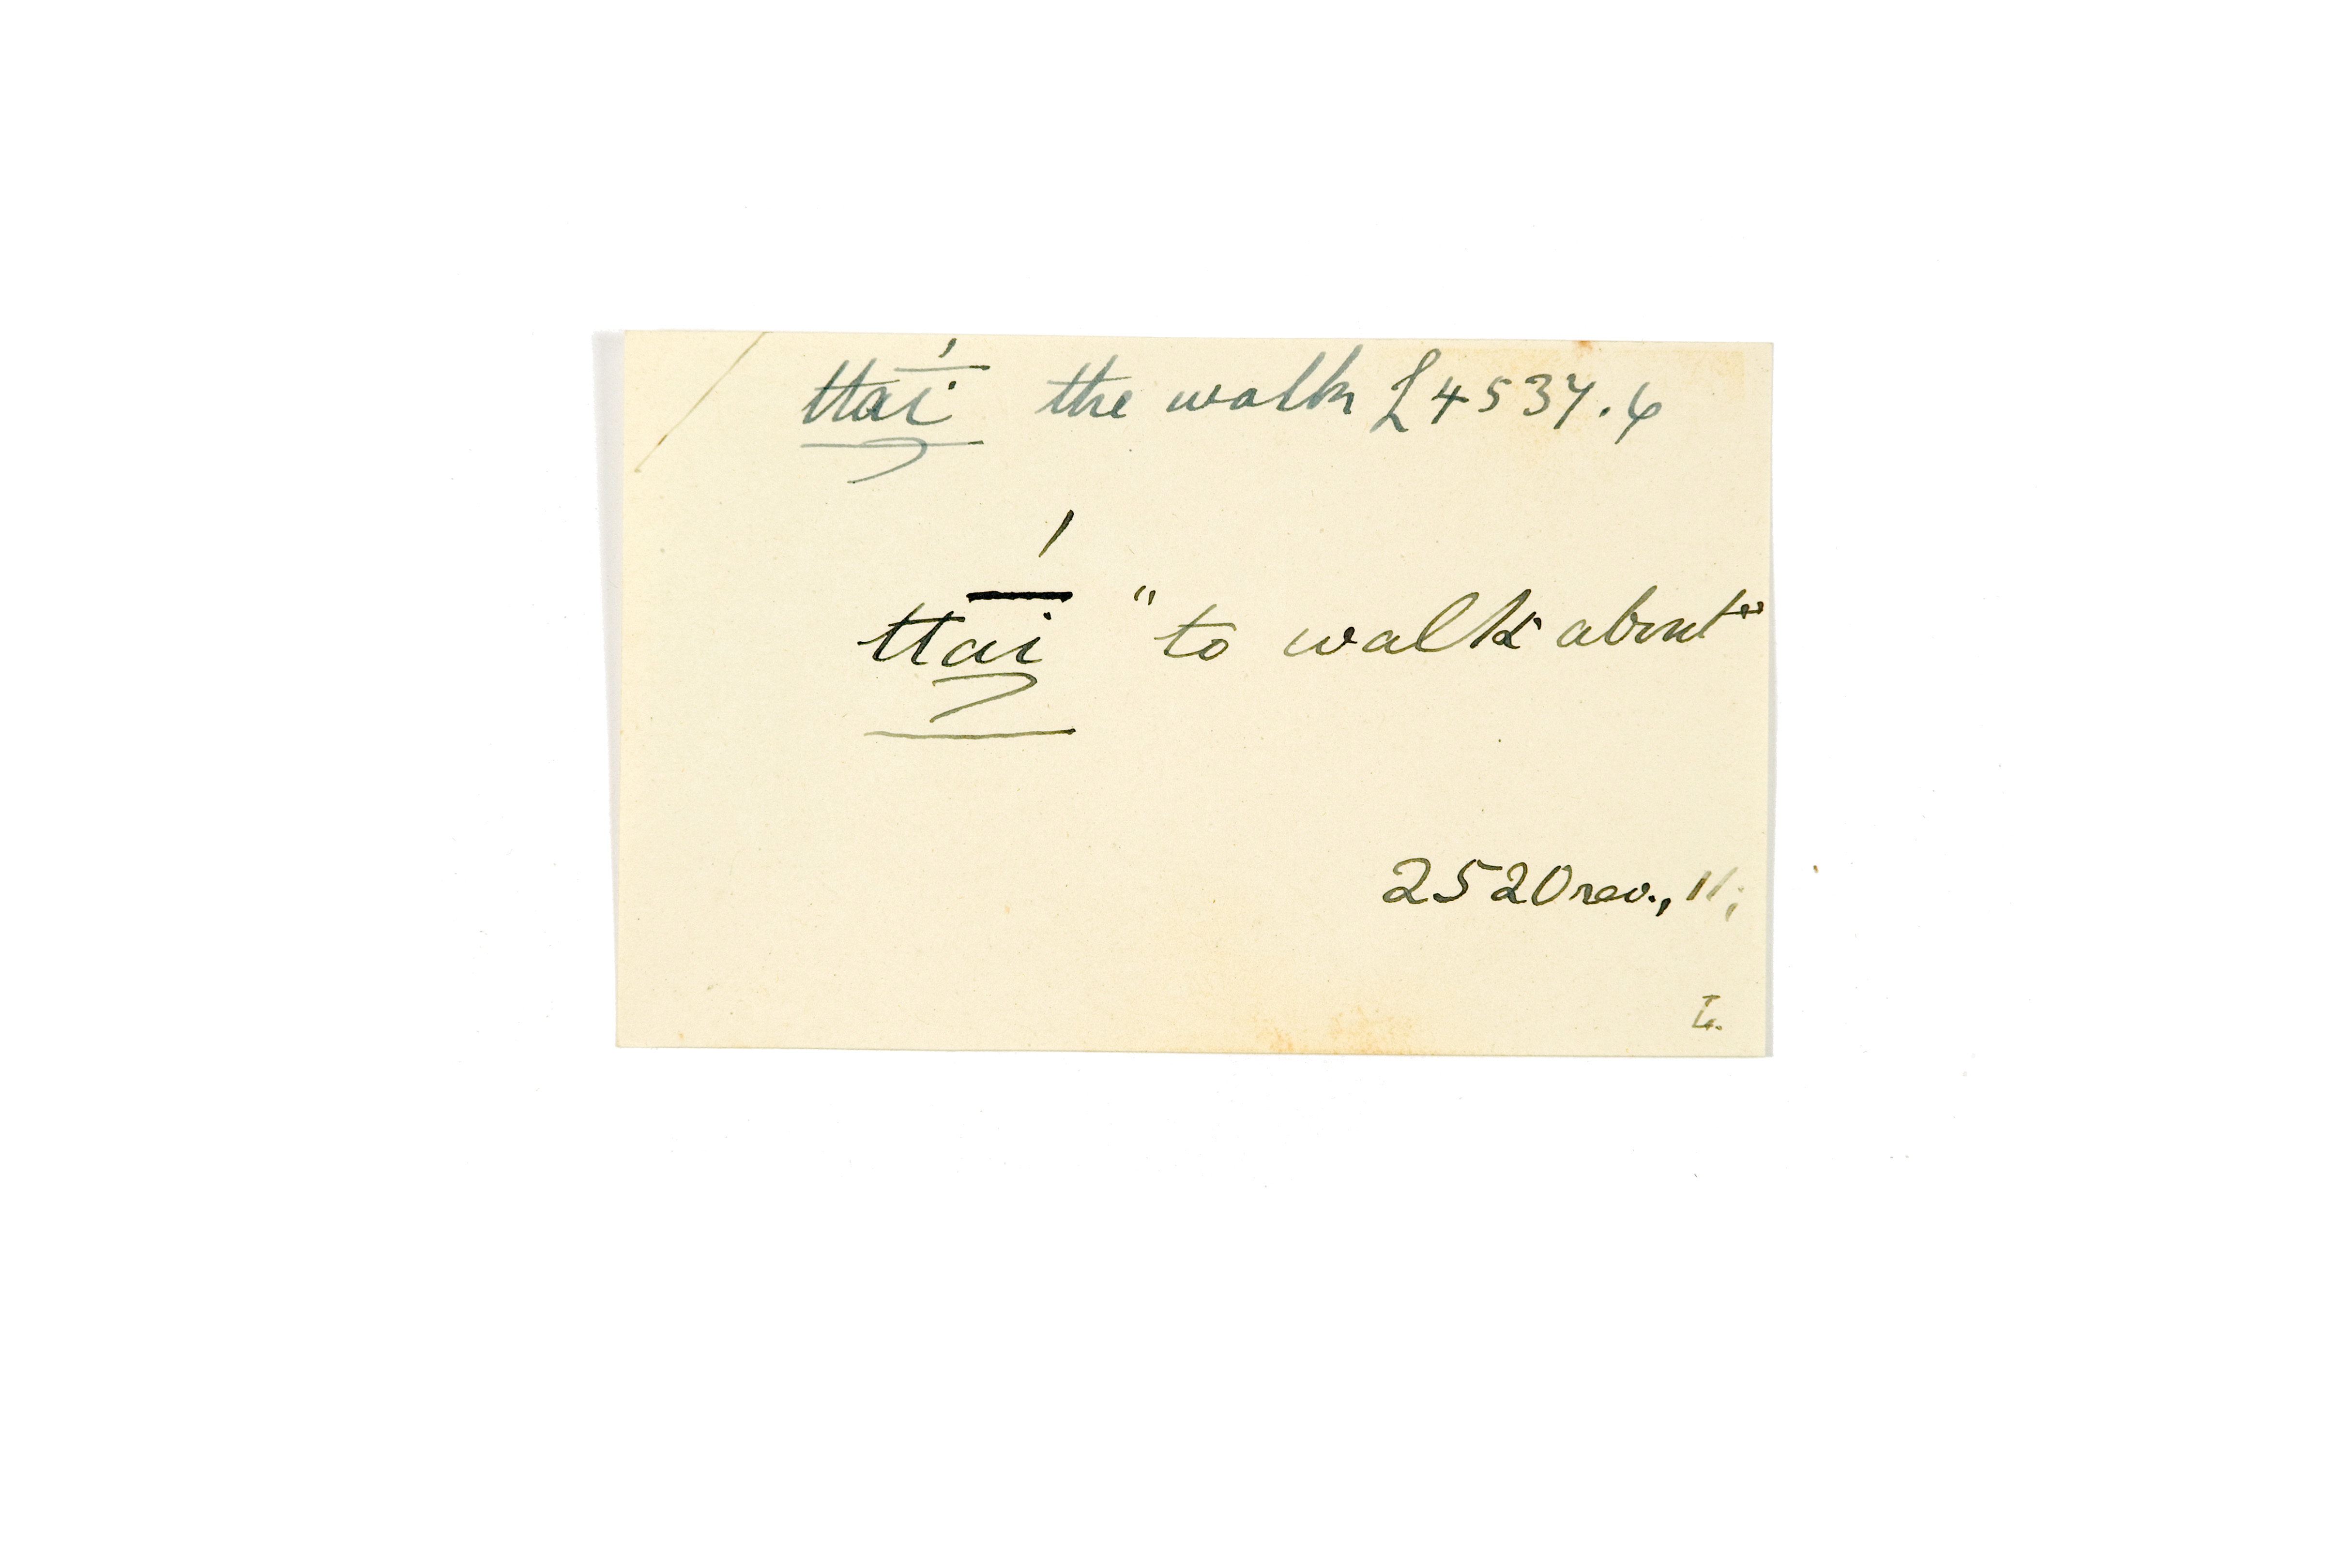 ttaí the walk L4537.6
ttaí "to walk about"
2520 rev., 11;
L.